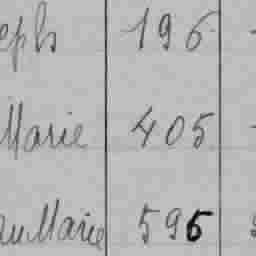 eph 196
Marie 405
Marie 596